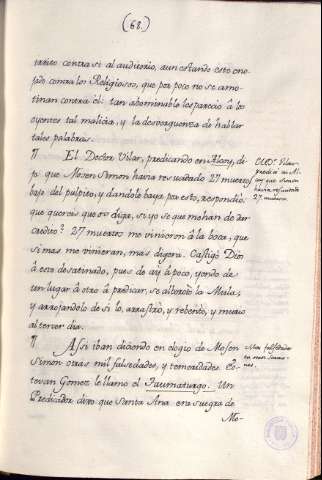 (68.)
tarito contra si al auditorio, aun estando este eno-
jado contra los Religiosos, que por poco no se amo-
tinan contra èl: tan abominable les parecio â los
oyentes tal malicia, y la desverguenza de hablar
tales palabras.
¶ El Doctor Vilar, predicando en Alcoy, di-
jo que Mosen Simon havia resucitado 27 muertos
bajo del pulpito, y dandole baya por esto, respondiò:
que quereis que os diga, si yo sé que me han de dar
credito? 27 muertos me vinieron â la boca, que
si mas me vinieran, mas digera. Castigò Dios
â este desatinado, pues de ay â poco, yendo de
un lugar â otro â predicar, se alborotò la Mula,
y arrojandolo de si lo arrastrò, y rebentò, y murio
al tercer dia.
El Dr. Vilar
predicò en Al-
coy, que Simon
havia resucitado
27. muertos.
¶ Assi iban diciendo en elogio de Mosen
Simon otras mil falsedades, y temeridades. Es-
tevan Gomez le llamò el Taumaturgo. Un
Predicador dixo que Santa Ana era suegra de
Mo-
Mas falsedades
en mas Sermo-
nes.